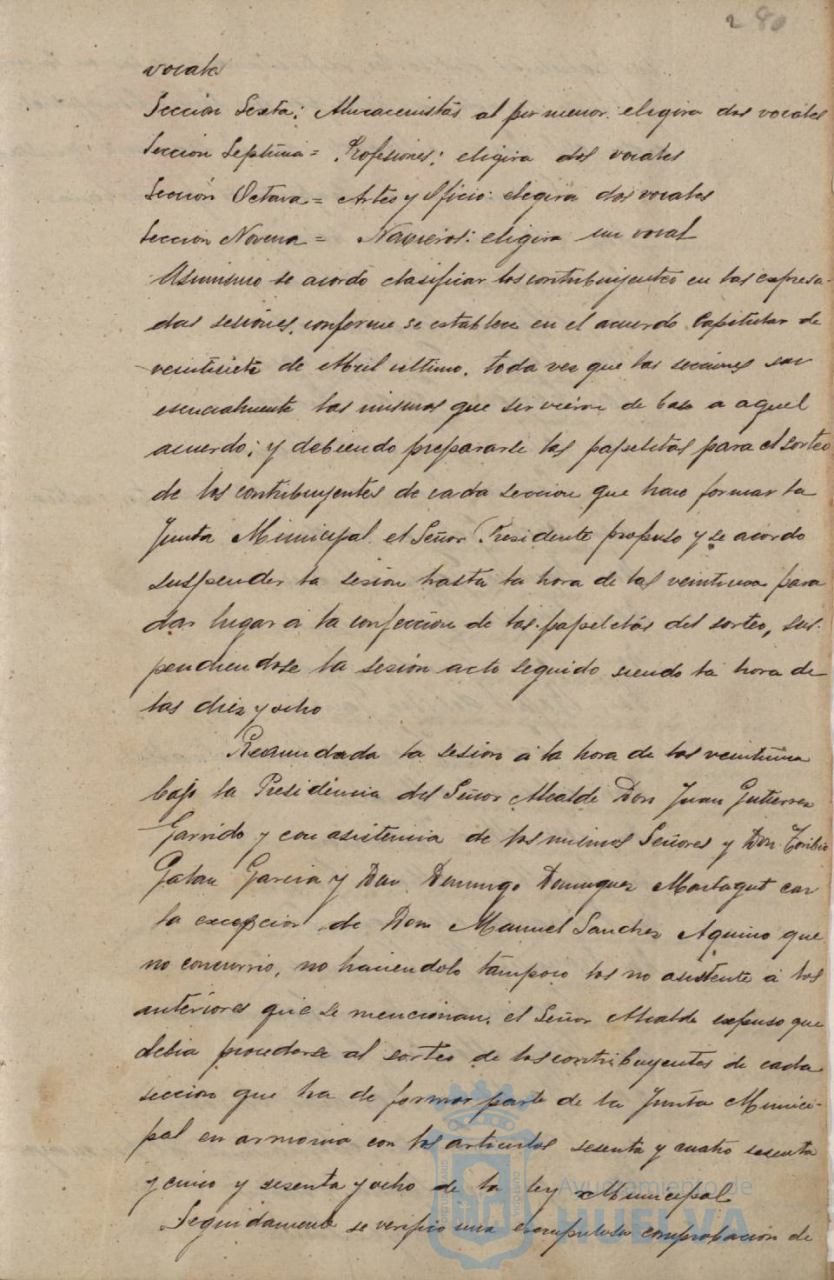 280
vocale
Seccion Sexta: Almacenistas al por menor: elegira dos vocales
Seccion Septima = Profesiones: eligira dos vocales
Sección Octava = Artes y Oficio: elegira dos vocales
Seccion Novena = Navieros: eligira un vocal
Asimismo se acordo clasificar los contribuyentes en las expresa-
das sesiones, conforme se establece en el acuerdo Capitular de
veintisiete de Abril ultimo, toda vez que las secciones son
esencialmente las mismas que sirvieron de base a aquel
acuerdo; y debiendo prepararse las papeletas para el sorteo
de los contribuyentes de cada seccion que han formar la
Junta Municipal el Señor Presidente propuso y se acordo
suspender la sesion hasta la hora de las veintiuna para
dar lugar á la confeccion de las papeletas del sorteo, sus-
pendiendose la sesión acto seguido siendo la hora de
las diez y ocho
Reanudada la sesion á la hora de las veintiuna
bajo la Presidencia del Señor Alcalde Don Juan Gutierrez
Garrido y con asistencia de los mismos Señores y Don Toribio
Galan Garcia y Don Domingo Dominguez Martagut con
la excepcion de Don Manuel Sanchez Aquino que
no concurrio, no haciendolo tampoco los no asistente á los
anteriores que se mencionan, el Señor Alcalde expuso que
debia procederse al sorteo de los contribuyentes de cada
seccion que ha de formar parte de la Junta Munici-
pal en armonia con los articulos sesenta y cuatro sesenta
y cinco y sesenta y ocho de la ley Municipal
Seguidamente se verificó una escrupulosa comprobacion de
Ayuntamiento de
HUELVA